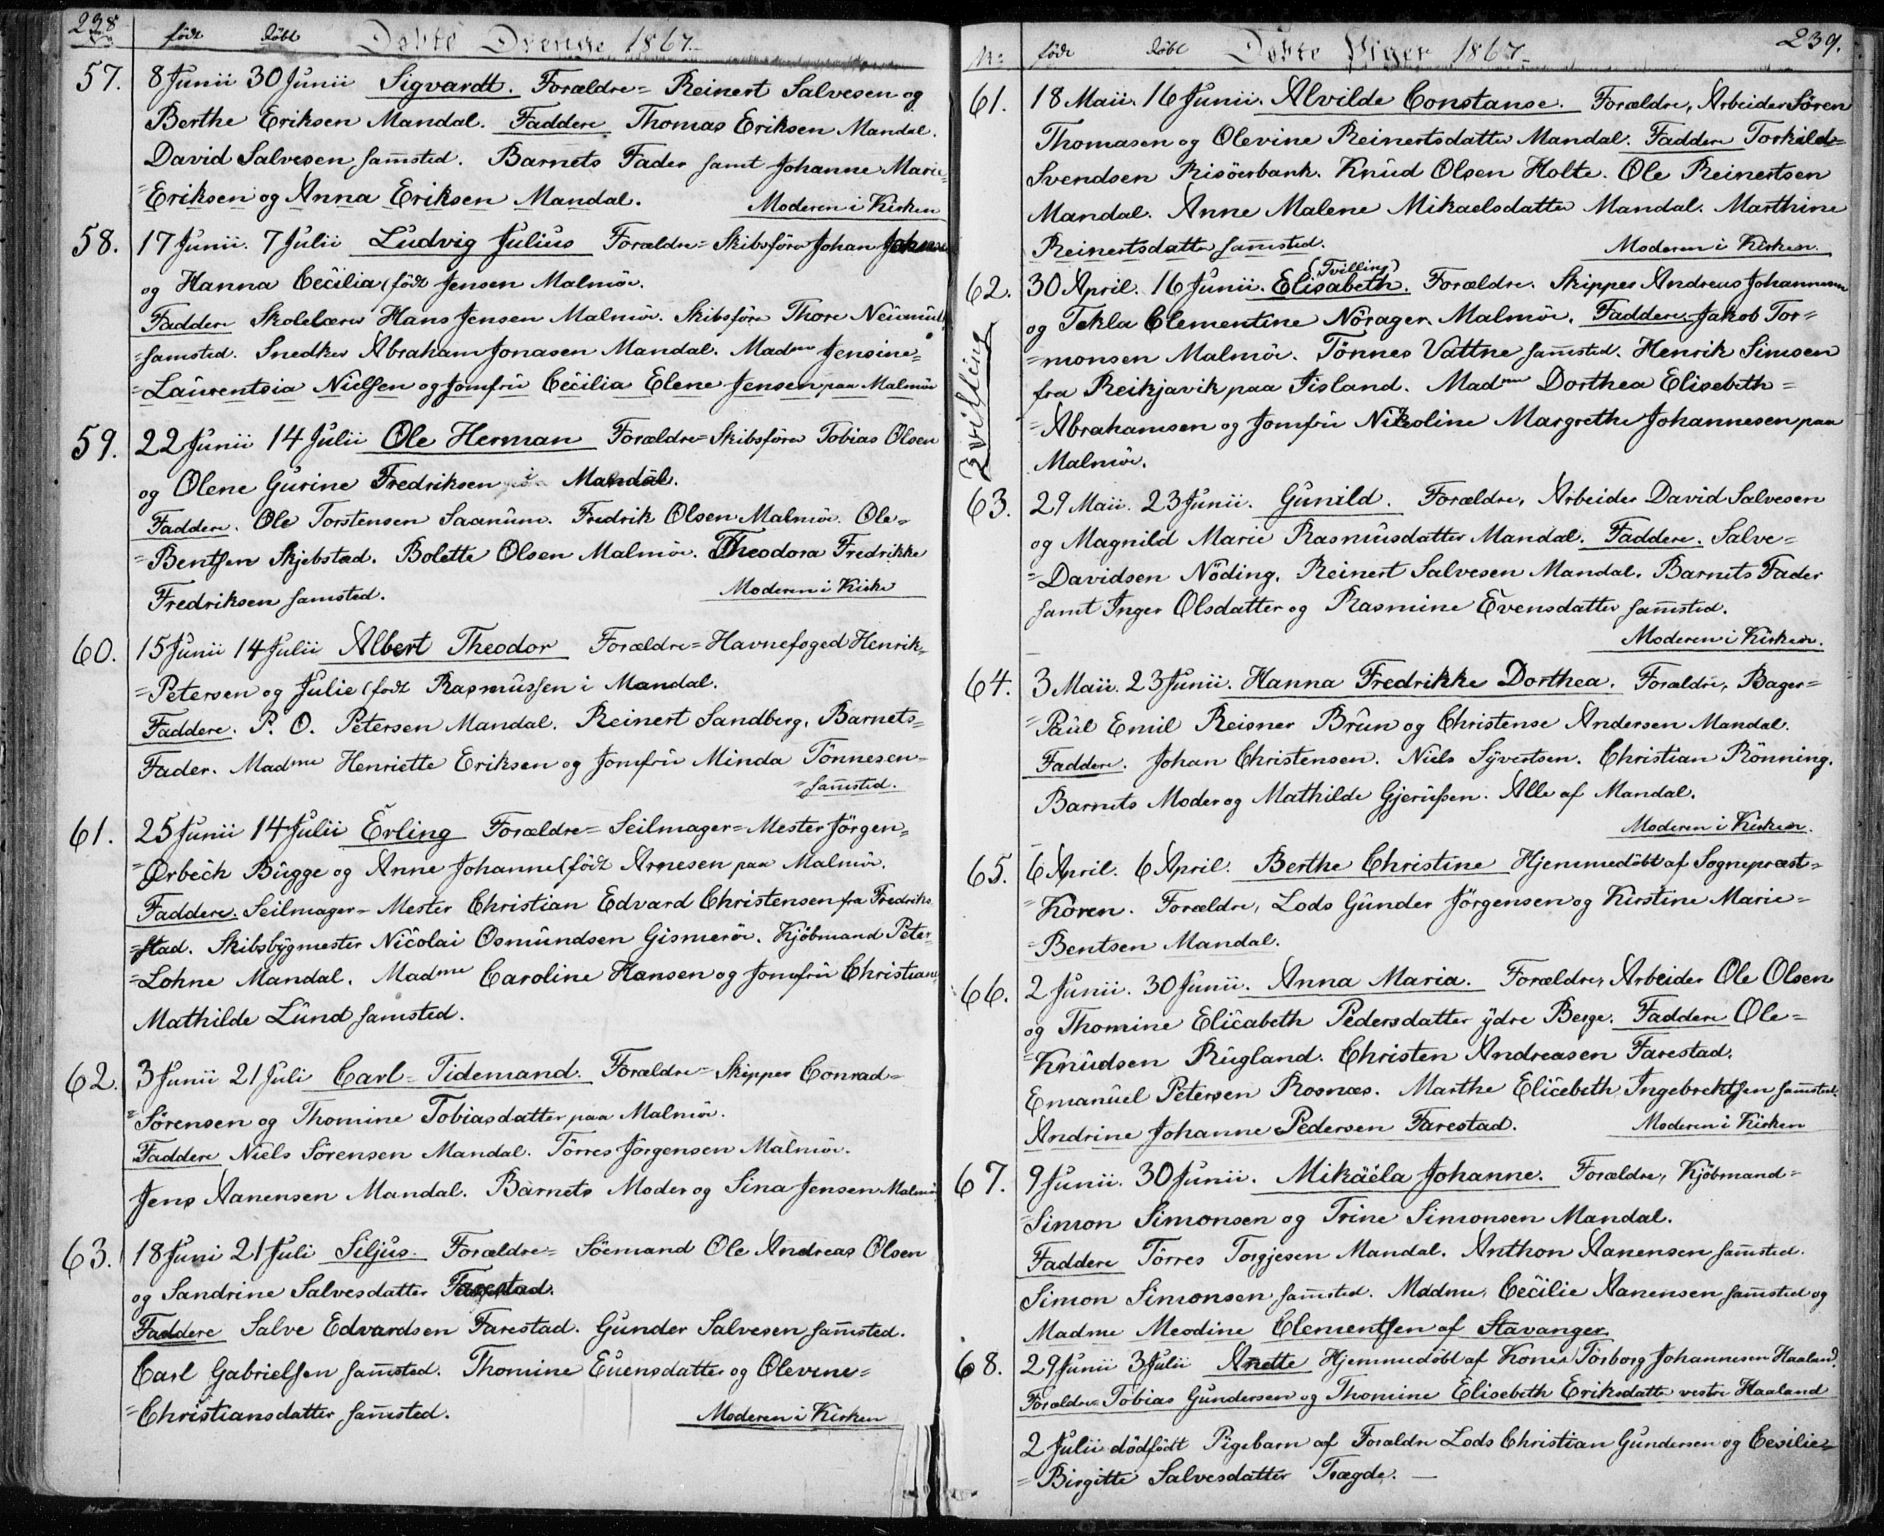 238
No født døbt Døbte Drenge 1867.
57. 8 Junii 30 Junii Sigvardt. Forældre= Reinert Salvesen og
Berthe Eriksen Mandal. Faddere Thomas Eriksen Mandal.
David Salvesen samsted. Barnets Fader samt Johanne Marie=
=Eriksen og Anna Eriksen Mandal. Moderen i Kirken
58. 17 Junii. 7 Julii Ludvig Julius Forældre= Skibsfører Johan
og Hanna Cecilia (født Jensen Malmøe.
Faddere Skolelærer Hans Jensen Malmøe. Skibsfører Thore
samsted. Snedker Abraham Jonasen Mandal. Madme Jensine=
=Laurentsia Nielsen og Jomfru Cecilia Elene Jensen paa Malmøe
59. 22 Junii 14 Julii Ole Herman Forældre= Skibsfører Tobias Olsen
og Olene Gurine Fredriksen i Mandal.
Faddere. Ole Torstensen Saanum. Fredrik Olsen Malmøe. Ole=
=Bentsen Skjebstad. Bolette Olsen Malmøe. Theodora Fredrikke
Fredriksen samsted. Moderen i Kirke
60. 15 Junii 14 Julii Albert Theodor Forældre= Havnefoged Henrik=
=Petersen og Julie (født Rasmussen i Mandal.
Faddere. P. O. Petersen Mandal. Reinert Sandberg, Barnets=
Fader. Madme Henriette Eriksen og Jomfru Minda Tönnesen=
=samsted.
61. 25 Junii 14 Julii Erling Forældre= Seilmager=Mester Jörgen=
=Ørbech Bugge og Anne Johanne (født Arnesen paa Malmøe.
Faddere. Seilmager= Mester Christian Edvard Christensen fra Fredriks
=stad. Skibsbygmester Nicolai Osmundsen Gismerøe. Kjöbmand Peter=
=Lohne Mandal. Madme Caroline Hansen og Jomfru Christiane
Mathilde Lund samsted.
62. 3 Junii 21 Juli Carl= Tidemand. Forældre= Skipper Conrad=
=Sörensen og Thomine Tobiasdatter paa Malmøe.
Faddere Niels Sörensen Mandal. Törres Jörgensen Malmøe.
Jens Aanensen Mandal. Barnets Moder og Sina Jensen Malmø
63. 18 Juni 21 Juli Siljus. Forældre= Söemand Ole Andreas Olsen
og Sandrine Salvesdatter Farestad.
Faddere Salve Edvardsen Farestad. Gunder Salvesen samsted.
Carl Gabrielsen samsted. Thomine Evensdatter og Olevine=
=Christiansdatter samsted. Moderen i Kirken
239.
No: født døbt Døbte Piger 1867.
61. 18 Maii. 16 Junii. Alvilde Constanse. Forældre, Arbeider Sören
Thomasen og Olevine Reinertsdatter Mandal. Faddere Torkild=
Svendsen Risöerbank. Knud Olsen Holte. Ole Reinertsen
Mandal. Anne Malene Mikaelsdatter Mandal. Marthine
Reinertsdatter samsted. Moderen i Kirken.
(Tvilling)
62. 30 April. 16 Junii. Elisabeth. Forældre. Skipper Andreas Johannesen
og Tekla Clementine Nörager Malmøe. Faddere Jakob Tor=
=monsen Malmøe. Tönnes Vattne samsted. Henrik Simsen
fra Reikjavik paa Iisland. Madme Dorthea Elisebeth=
=Abrahamsen og Jomfru Nikoline Margrethe Johannesen paa
Malmøe.
Tvilling
63. 29 Maii. 23 Junii. Gunild. Forældre, Arbeider David Salvesen
og Magnild Marie Rasmusdatter Mandal. Faddere. Salve=
=Davidsen Nöding. Reinert Salvesen Mandal. Barnets Fader
samt Inger Olsdatter og Rasmine Evensdatter samsted.
Moderen i Kirken.
64. 3 Maii. 23 Junii. Hanna Fredrikke Dorthea. Forældre, Bager=
=Paul Emil Reisner Brun og Christense Andersen Mandal.
Faddere. Johan Christensen. Niels Syvertsen. Christian Rönning.
Barnets Moder og Mathilde Gjerussen. Alle af Mandal.
Moderen i Kirken.
65. 6 April. 6 April. Berthe Christine Hjemmedöbt af Sognepræst=
=Koren. Forældre, Lods Gunder Jörgensen og Kirstine Marie=
=Bentsen Mandal.
66. 2 Junii. 30 Junii. Anna Maria. Forældre, Arbeider Ole Olsen
og Thomine Elicabeth Pedersdatter ydre Berge. Faddere Ole=
=Knudsen Rugland. Christen Andreasen Farestad.
Emanuel Petersen Rosnæs. Marthe Elicebeth Ingebrektsen samsted.
Andrine Johanne Pedersen Farestad. Moderen i Kirken
67. 9 Junii. 30 Junii. Mikäela Johanne. Forældre, Kjöbmand=
=Simon Simonsen og Trine Simonsen Mandal.
Faddere Törres Torgjesen Mandal. Anthon Aanensen samsted.
Simon Simonsen samsted. Madme, Cecilie Aanensen samsted og
Madme Meodine Clementsen af Stavanger.
68. 29 Junii 3 Julii Anette Hjemmedöbt af Konen Torborg Johannesen Haaland.
Forældre= Tobias Gundersen og Thomine Elisebeth Eriksdatter vestre Haaland
2 Julii dödfödt Pigebarn af Forældre Lods Christian Gundersen og Cesilie=
=Birgitte Salvesdatter Trægde. —